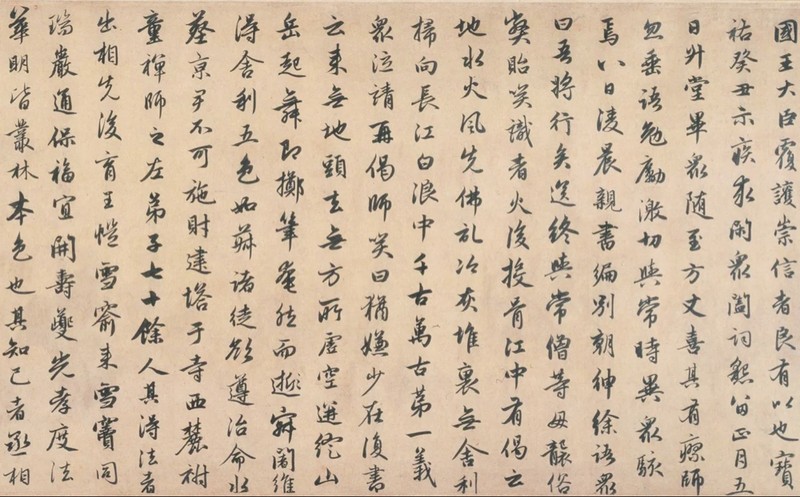 國王大臣覆護崇信者良有以也寶
祐癸丑示疾求閑眾闔詞懇留正月五
日升堂畢眾隨至方丈喜其有瘳師
忽垂語勉勵激切與常時異眾駭
焉八日淩晨親書徧別朝紳徐語眾
曰吾將行矣送終與常僧等毋襲俗
貽笑識者火後投骨江中有偈云
地水火風先佛記冷灰堆裏無舍利
掃向長江白浪中千古萬古第一義
眾泣請再偈師笑曰猶嫌少在復書
云來無地頭去無方所虛空迸綻山
岳起舞即擲筆奄然而逝寂闍維
得舍利五色如菽諸徒欲遵治命水
葬京尹不可施財建塔于寺西麓祔
童禪師之左弟子七十餘人其得法者
出相先後育王愷雪窬來雪竇同
瑞巖通保福宜開壽夔光孝度法
華明皆叢林本色也其知己者丞相